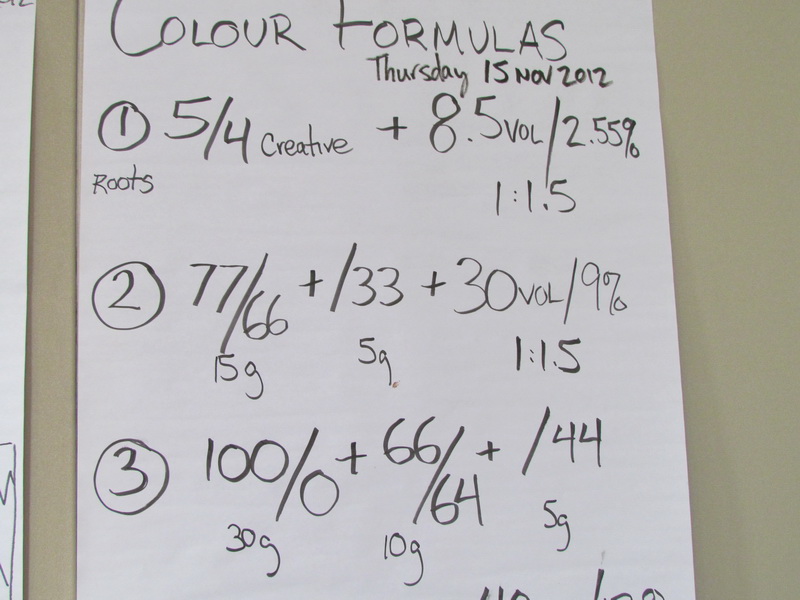 COLOUR FORMULAS
Thursday 15 NOV 2012
① 5/4 Creative + 8.5 VOL/2.55%
Roots 1:1.5
② 77/66 + /33 + 30 VOL/9%
15g 5g 1:1.5
③ 100/0 + 66/64 + /44
30g 10g 5g